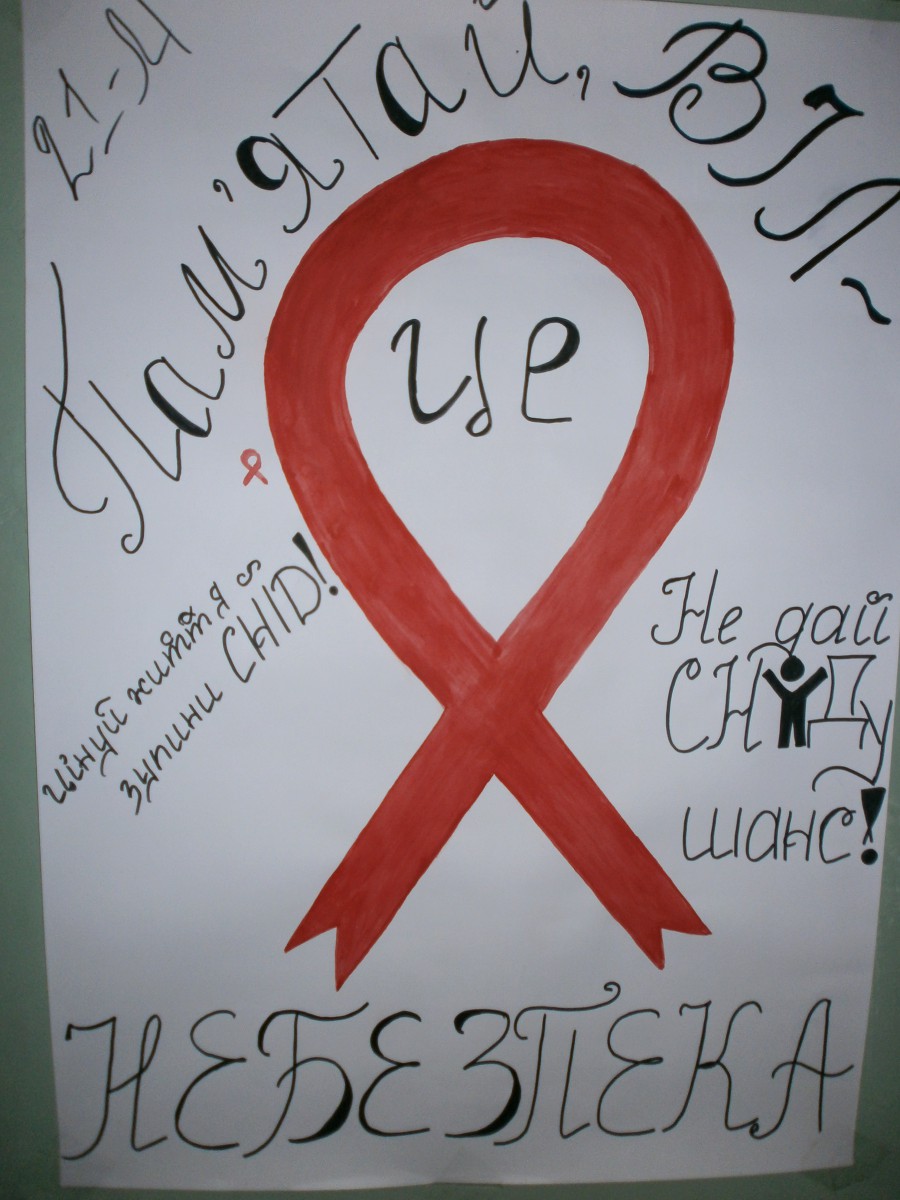 Пам'ятай, ВІЛ -
це
цінуй життя
зупини СНІД!
Не дай
СНІДу
шанс!
НЕБЕЗПЕКА